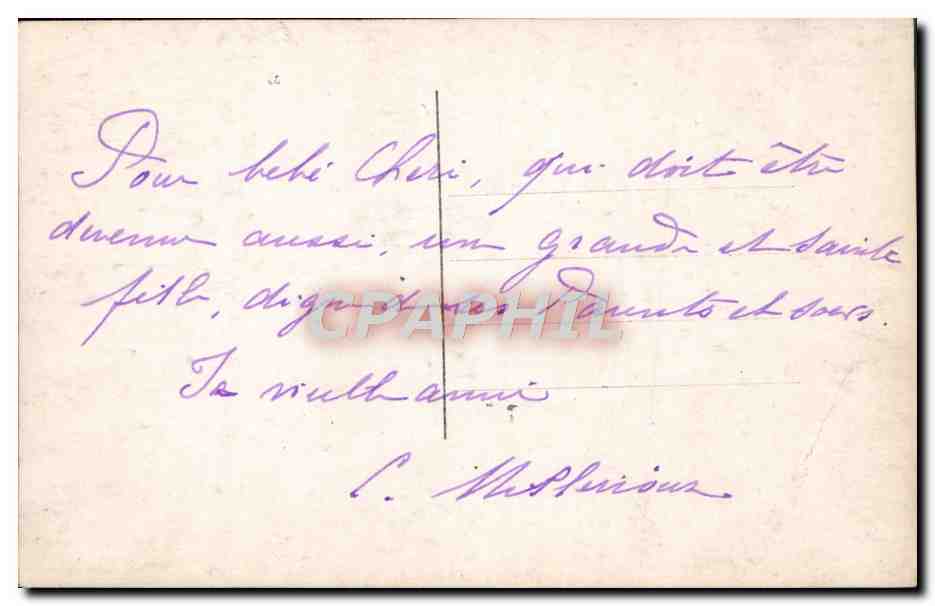 Pour bebé Cheri, qui doit être
devenue aussi, un grande et sainte
fille, digne de ses Parents et soeurs.
Ta vieille amie
C.
CPAPHIL